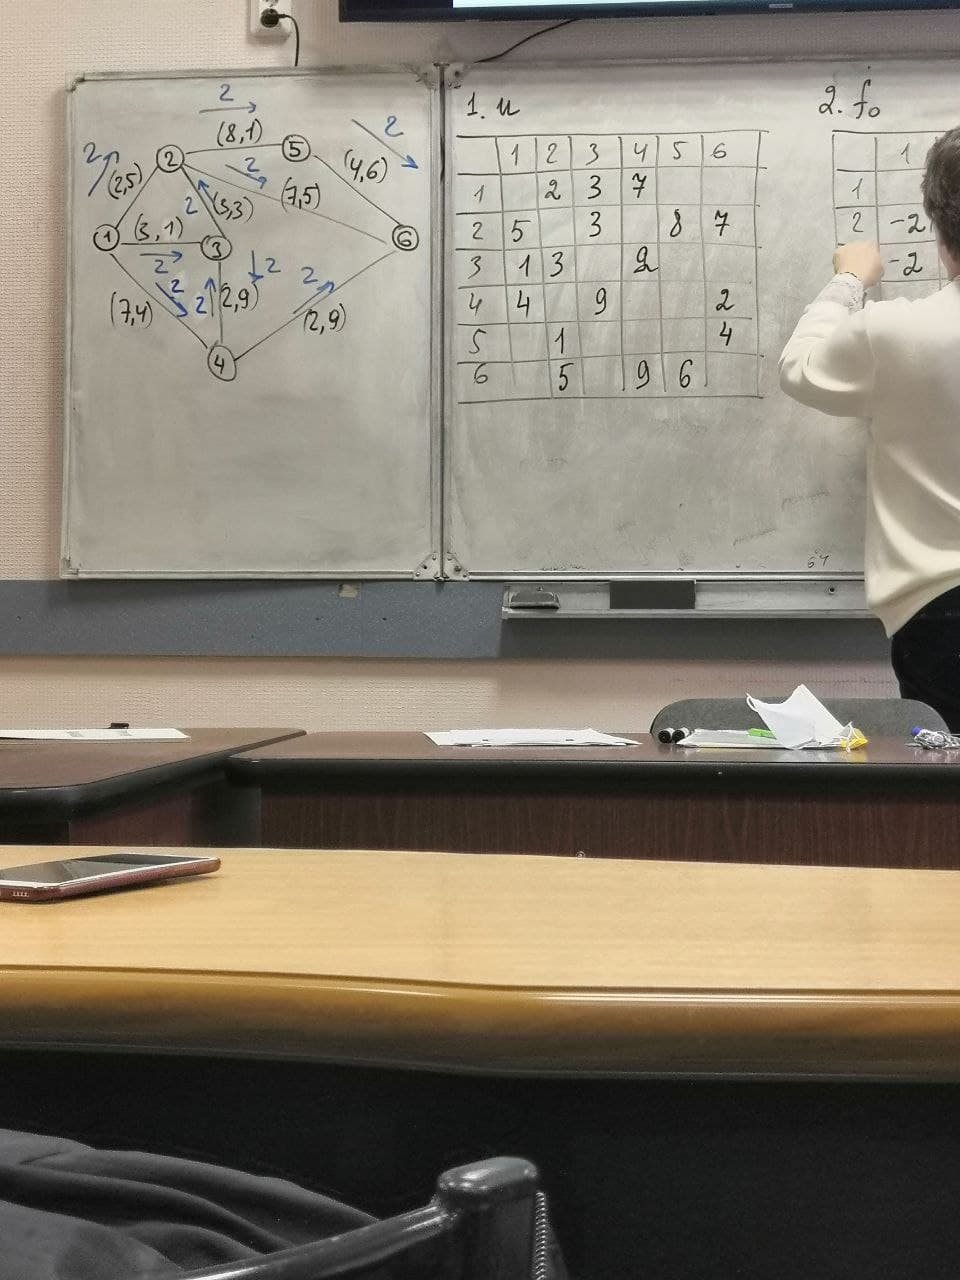 2
(8,1)
5
2
2
2
2
(4,6)
(2,5)
(7,5)
2
(3,3)
(3,1)
1
3
6
2
2
2
2
2
(7,4)
(2,9)
(2,9)
4
1. u
1 2 3 4 5 6
1 2 3 7
2 5 3 8 7
3 1 3 2
4 4 9 2
5 1 4
6 5 9 6
64
2. f₀
1
1
2 -2
-2